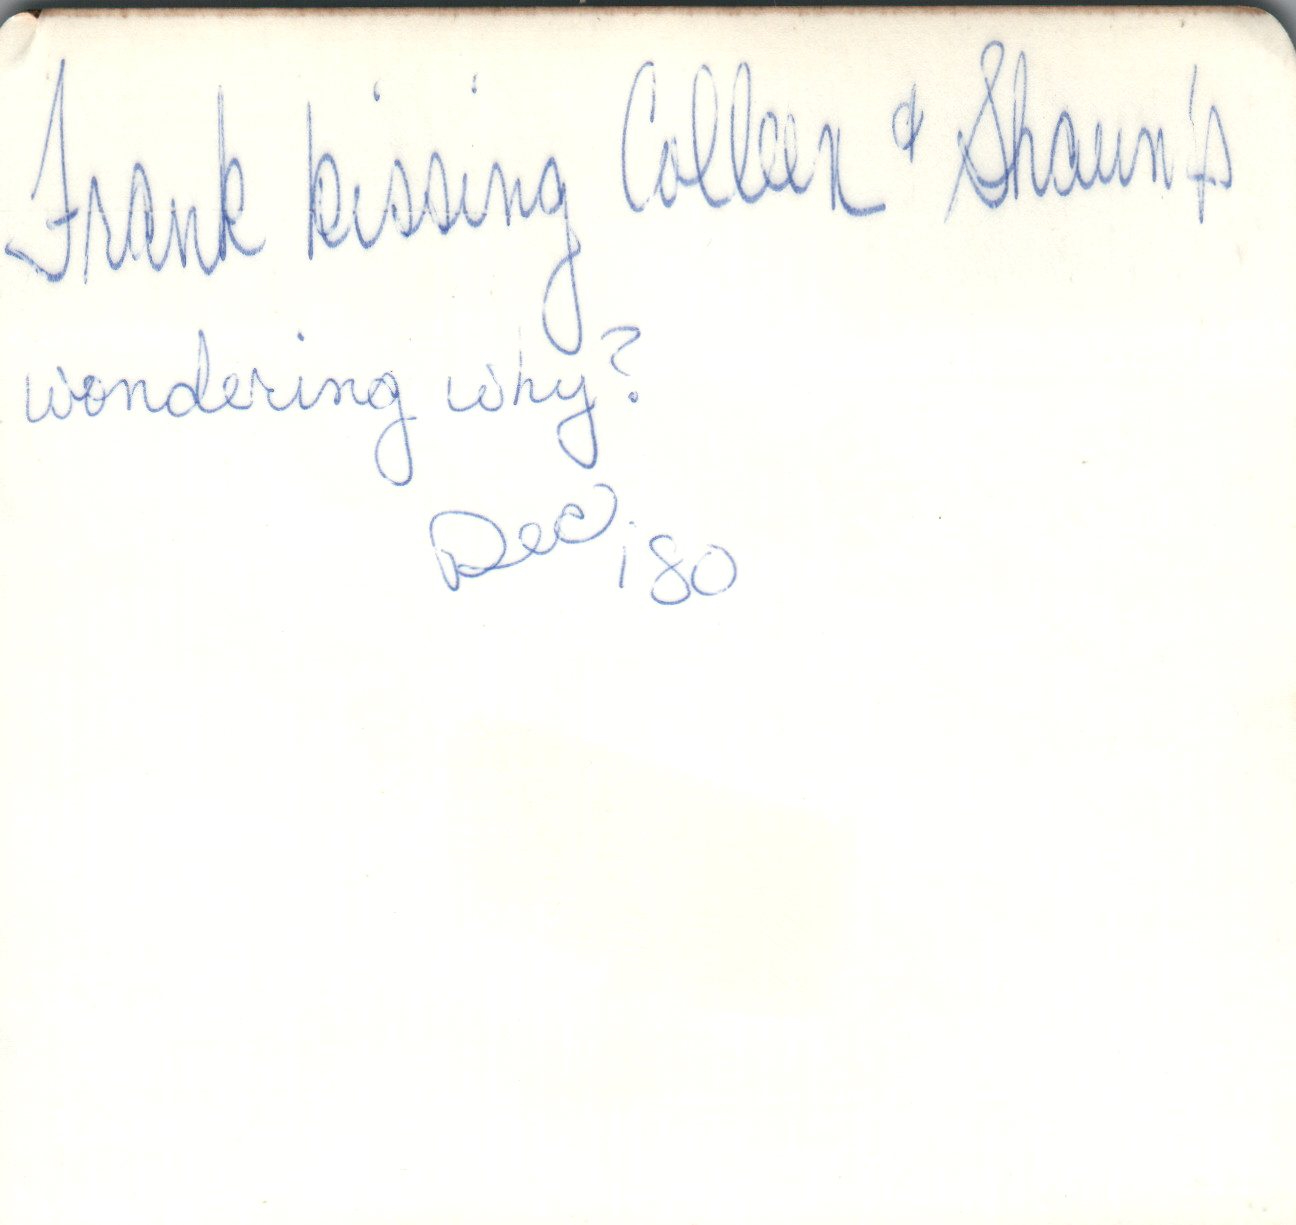 Frank kissing Colleen & Shaun's
wondering why?
Dec '80